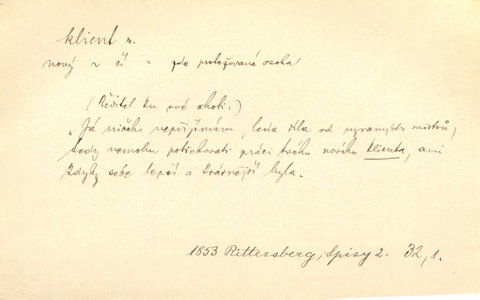 klient m.
nový v čš = zde protežovaná osoba
(Ředitel ku své choti.)
„Já ničeho nepřijímám, leda díla od uznaných mistrů,
tedy nemohu potřebovati práci tvého nového klienta, ani
kdyby sebe lepší a krásnější byla.
1853 Rittersberg, Spisy 2. 32,1.